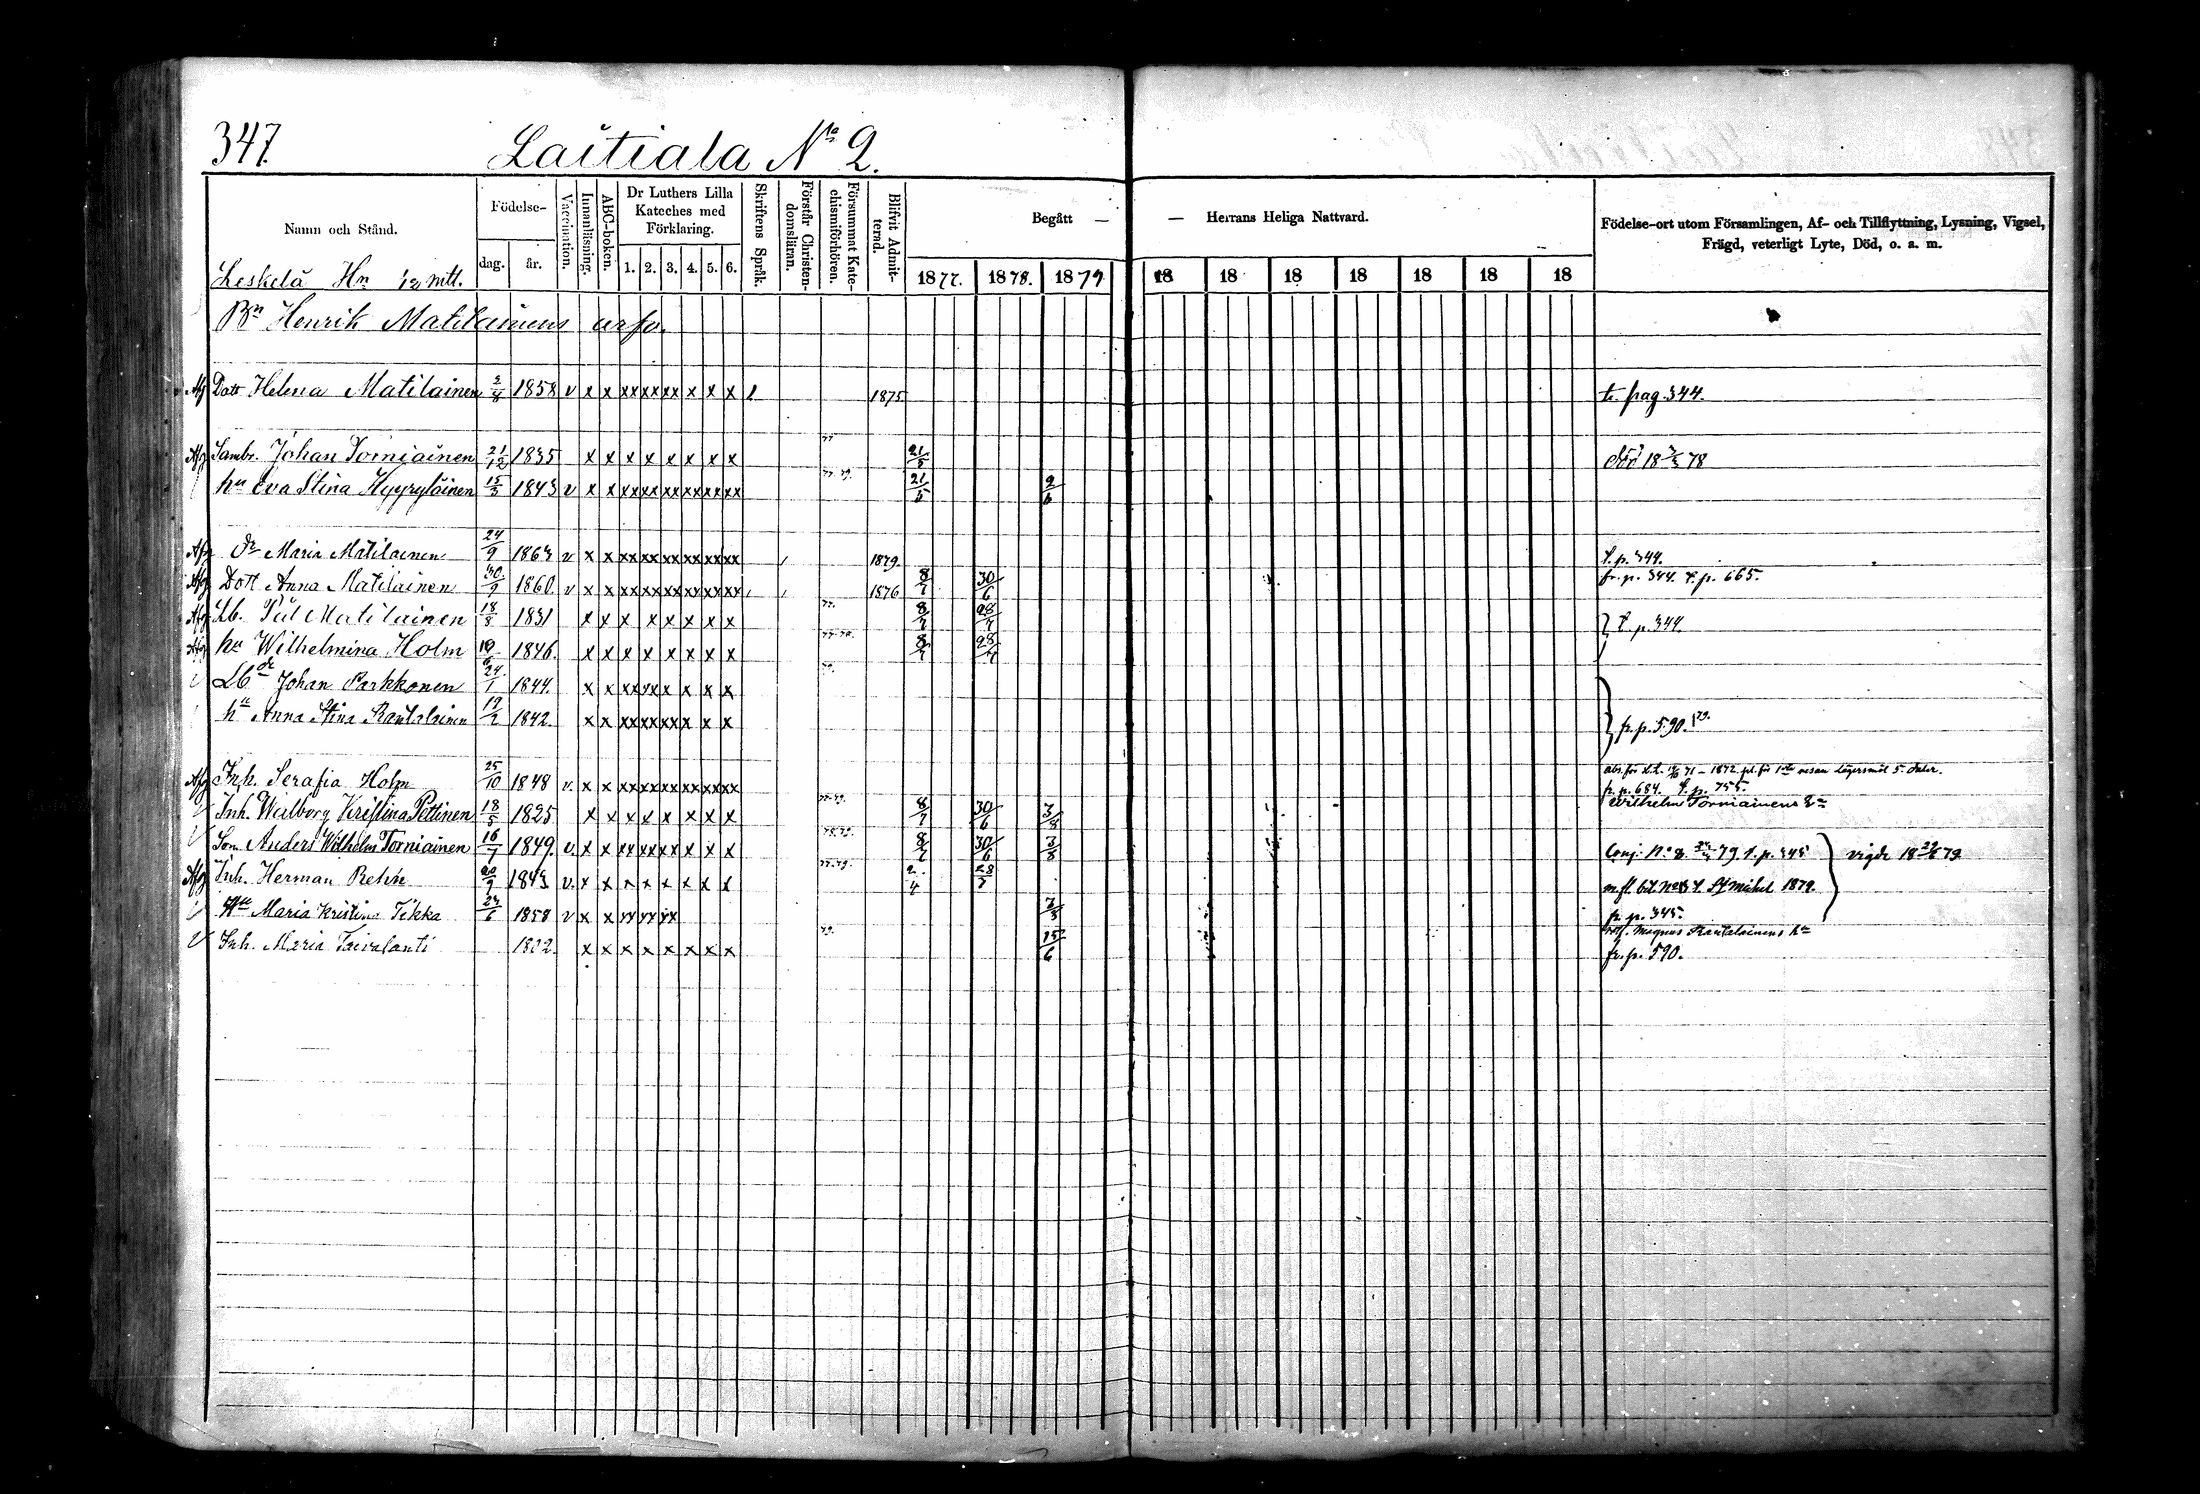 347.
Laitiala No 2.
Namn och Stånd.
Födelse-
dag.
år.
Vaccination.
Innanläsning.
ABC-boken.
Dr Luthers Lilla Kateches med Förklaring.
1. 2. 3. 4. 5. 6.
Skriftens Språk.
Förstår Christen-domsläran.
Försummat Kate-chismiförhören.
Blifvit Admit-terad.
Begått —
— Herrans Heliga Nattvard.
1877. 1878. 1879 18 18 18 18 18 18 18
Födelse-ort utom Församlingen, Af- och Tillflyttning, Lysning, Vigsel,
Frägd, veterligt Lyte, Död, o. a. m.
Leskelä Hn 1/2 mtt.
Bn Henrik Matilainens
Afg Dott Helena Matilainen 1858 v x x xx xx xx x x x 1875 t. pag. 344.
Afg Johan Torniainen 21/12 1835 x x x x x x x x 77 21/5 död 18 78
hu Eva Stina Hyyryläinen 15/3 1843 v x x xx xx xx xx xx xx 77.79. 21/5 2/6
Afg Dr Maria Matilainen 24/9 1863 v x x xx xx xx xx xx xx 1879. t. p. 344.
Afg Dott Anna Matilainen 30/9 1860 v x x xx xx xx xx xx xx 1876 8/7 30/6 fr. p. 344. t. p. 665.
Afg Lb. Pål Matilainen 18/8 1831 x x x x x x x x 77. 8/7 28/7 } t. p. 344.
Afg hu Wilhelmina Holm 10/6 1846. x x x x x x x x 8/7 28/7
Lb Johan Parkkonen 24/1 1844. x x xx xx x x x x
hu Anna Stina Rantalainen 17/2 1842. x x xx xx xx x x x } fr. p. 590. 79.
Afg Inh. Serafia Holm 25/10 1848 v. x x xx xx xx xx xx xx
fr. p. 684. t. p. 755.
Inh. Walborg Kristina Pettinen 18/5 1825 x x x x x x x x 77.79. 8/7 30/6 3/8 Wilhelm Torniainens
Son Anders Wilhelm Torniainen 16/7 1849. v. x x xx xx xx x x x 78.79. 8/7 30/6 3/8 Conj. No 8. 79. t. p. 345 } vigde 18 79.
Afg Inh. Herman Rehn 20/9 1843 v. x x x x x x x x 77.79. 2/4 28/7 m. fl. bet. t. St Michel 1879.
Maria Kristina Tikka 23/6 1858 v x x xx xx xx 3/8 fr. p. 345.
Inh. Maria 1802. x x x x x x x x 79. 15/6 Magnus Rantalainens
fr. p. 590.